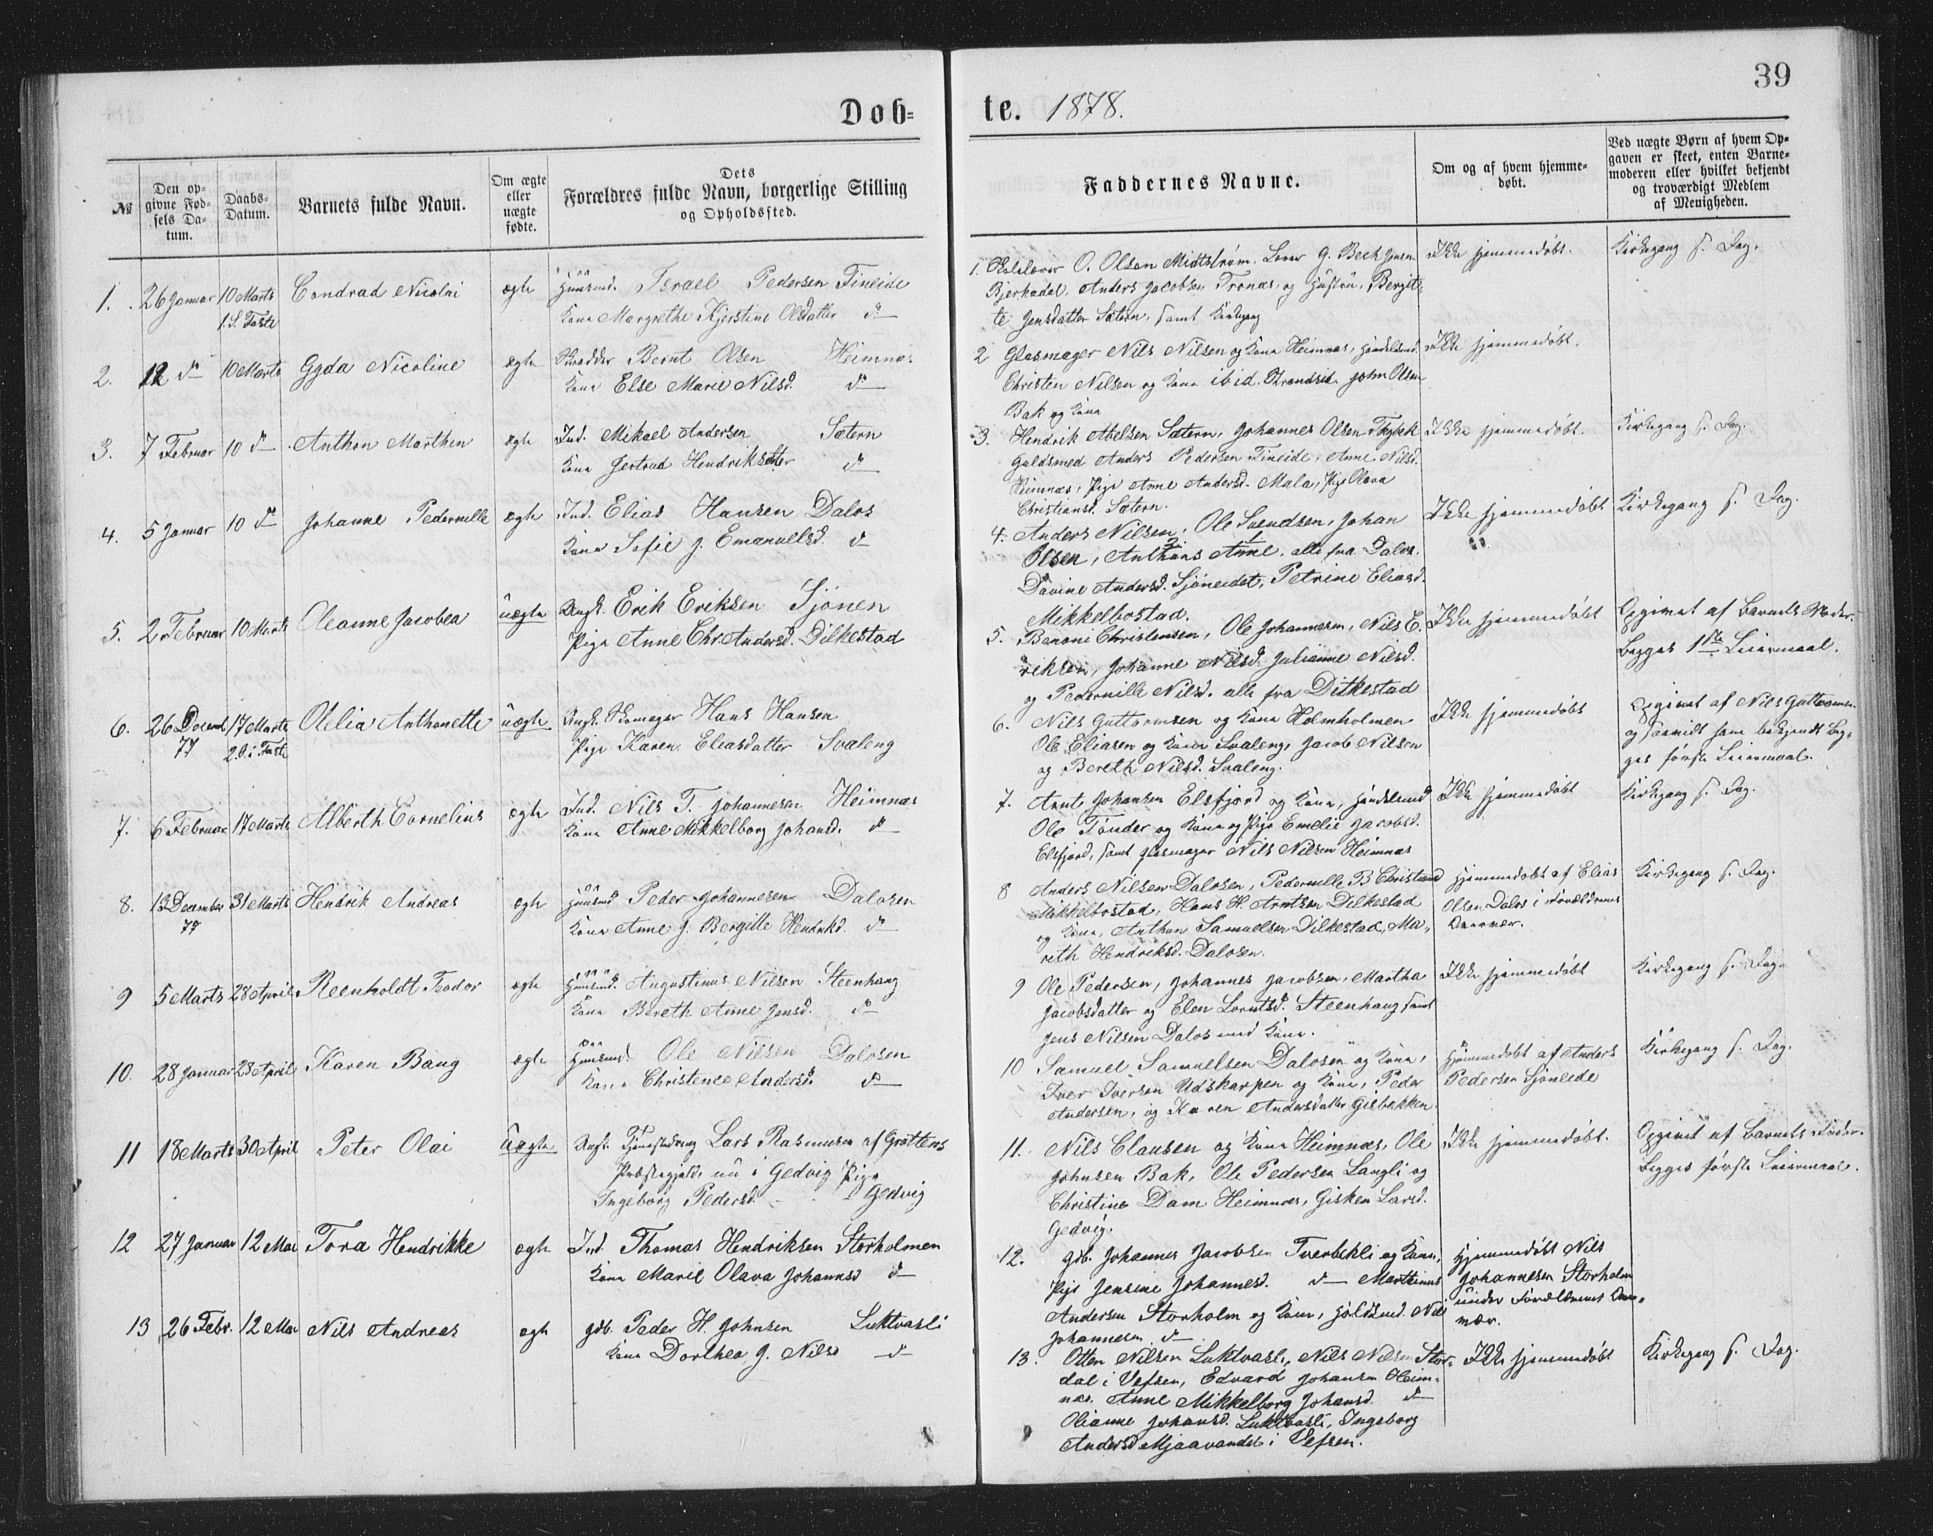 39
Døb=
te. 1878.
№
Den op-
givne Fød-
sels Da-
tum.
Daabs-
Datum.
Barnets fulde Navn.
Om ægte
eller
uægte
fødte.
Dets
Forældres fulde Navn, borgerlige Stilling
og Opholdssted.
Faddernes Navne.
Om og af hvem hjemme-
døbt.
Ved uægte Børn af hvem Op-
gaven er skeet, enten Barne-
moderen eller hvilket bekjendt
og troværdigt Medlem
af Menigheden.
1. 26 Januar 10 Marts Condrad Nicolai ægte Huusmd. Israel Pedersen Fineide
1. S. Faste Kone Margrethe Kjerstine Olsdatter do
1. O. Olsen Midtstrøm, G. Beck Jensen
Bjerkadal, Anders Jacobsen Tronæs, og Hustru, Bergit-
te Jensdatter Sætern, samt
Ikke hjemmedøbt.
Kirkegang s. Dag.
2. 12 do 10 Marts Gyda Nicoline ægte Skrædder Bernt Olsen Heimnæs
Kone Else Marie Nilsd. do
2 Glasmager Nils Nilsen og Kone Heimnæs, Handelsmd.
Christen Nilsen og Kone ibid. Strandsid. John Olsen
Bak og Kone
Ikke hjemmedøbt.
3. 7 Februar 10 do Anthon Marthin ægte Ind. Mikael Andersen Sætern
Kone Gertrud Hendriksdatter do
3. Hendrik Abelsen Sætern, Johannes Olsen
Guldsmed Anders Pedersen Fineide, Anne Nilsd.
Heimnæs, Pige Anne Andersd. Mala, Pige Olava
Christiansd. Sætern.
Ikke hjemmedøbt.
Kirkegang s. Dag.
4. 5 Januar 10 do Johanne Pedernille ægte Ind. Elias Hansen Dalos
Kone Sofie J. Emanuelsd. do
4. Anders Nilsen, Ole Svendsen, Johan
Olsen, Anthons Anne, alle fra Dalos.
Davine Andersd. Sjøneidet, Petrine Eliasd.
Mikkelbostad.
Ikke hjemmedøbt
Kirkegang s. Dag.
5. 2 Februar 10 Marts Oleanne Jacobea uægte Ungk. Erik Eriksen Sjønen
Pige Anne Chr Andersd. Dilkestad
5. Benoni Christensen, Ole Johannesen, Nils E.
riksen, Johanne Nilsd. Julianne Nilsd.
og Pedernille Nilsd. alle fra Dilkestad
Ikke hjemmedøbt
Opgivet af Barnets Moder.
Begges 1ste Leiermaal.
6. 26 Decmb. 17 Marts Olelia Anthonette uægte Ungk. Skomager Hans Hansen
77 2 S. i Faste Pige Karen Eliasdatter Svaleng
6. Nils Guttormsen og Kone Holmholmen
Ole Eliasen og Kone Svaleng, Jacob Nilsen
og Bereth Nilsd. Svaleng.
Ikke hjemmedøbt
Opgivet af Nils Guttormsen
og som bekjendt Beg-
ges første Leiermaal.
7. 6 Februar 17 Marts Alberth Cornelius ægte Ind. Nils T. Johannesen Heimnæs
Kone Anne Mikkelborg Johansd. do
7. Arnt Johansen Elsfjord og Kone, Handelsmd
Ole Tønder og Kone og Pige Emelie Jacobsd.
Elsfjord, samt Glasmager Nils Nilsen Heimnæs
Ikke hjemmedøbt
Kirkegang s. Dag.
8. 13 December 31 Marts Hendrik Andreas ægte Huusmd. Peder Johannesen Dalosen
77 Kone Anne J. Bergitte Hendrikd. do
8 Anders Nilsen Dalosen, Pedernille B Christiansd
Mikkelbostad, Hans H. Arntsen Dilkestad
og Kone, Anthon Samuelsen Dilkestad, Me-
reth Hendriksd. Dalosen.
Hjemmedøbt af Elias
Olsen Dalos i Forældrenes
Nærvær.
Kirkegang s. Dag.
9 5 Marts 28 April Reenholdt Teodor ægte Huusmd. Augustinus Nilsen Steenhaug
Kone Bereth Anne Jensd. do
9 Ole Pedersen, Johannes Jacobsen, Martha
Jacobsdatter og Elen Lorntsd. Steenhaug samt
Jens Nilsen Dalos med Kone.
Ikke hjemmedøbt
Kirkegang s. Dag.
10. 28 Januar 28 April Karen Bang ægte Huusmd. Ole Nilsen Dalosen
Kone Christence Andersd. do
10 Samuel Samuelsen Dalosen og Kone,
Iver Iversen Udskarpen og Kone, Peder
Andersen, og Karen Andersdatter Gisbakken.
Hjemmedøbt af Anders
Pedersen Sjøneide
Kirkegang s. Dag.
11 18 Marts 30 April Peter Olai Uægte Ungk. Lars Rasmusen af Grøttens
Præstegjeld, nu i Gedvig Pige
Ingeborg Pedersd. Gedvig
11. Nils Clausen og Kone Heimnæs, Ole
Johnsen Bak, Ole Pedersen Langli og
Christine Dam Heimnæs, Gisken Larsd.
Gedvig.
Ikke hjemmedøbt.
Opgivet af Barnets Fader.
Begges første Leiermaal.
12 27 Januar 12 Mai Tora Hendrikke ægte Ind. Thomas Hendriksen Storholmen
Kone Marie Olava Johannsd do
12. Gdb. Johannes Jacobsen Tverbekli og Kone,
Pige Jensine Johannesd. do Marthinus
Andersen Storholm og Kone, Nils
Johannesen do
Hjemmedøbt Nils
Johannesen Storholm
under Forældrenes Nær-
vær.
13 26 Febr. 12 Mai Nils Andreas ægte Gdb. Peder H. Johnsen Luktvasli
Kone Dorthea J. Nilsd do
13. Otten Nilsen Luktvasli, Nils Nilsen Stor-
dal i Vefsen, Edvard Johansen Heim-
næs. Anne Mikkelborg Johansd. do
Olianne Johansd. Luktvasli, Ingeborg
Andersd Mjaavandet i Vefsen.
Ikke hjemmedøbt
Kirkegang s. Dag.